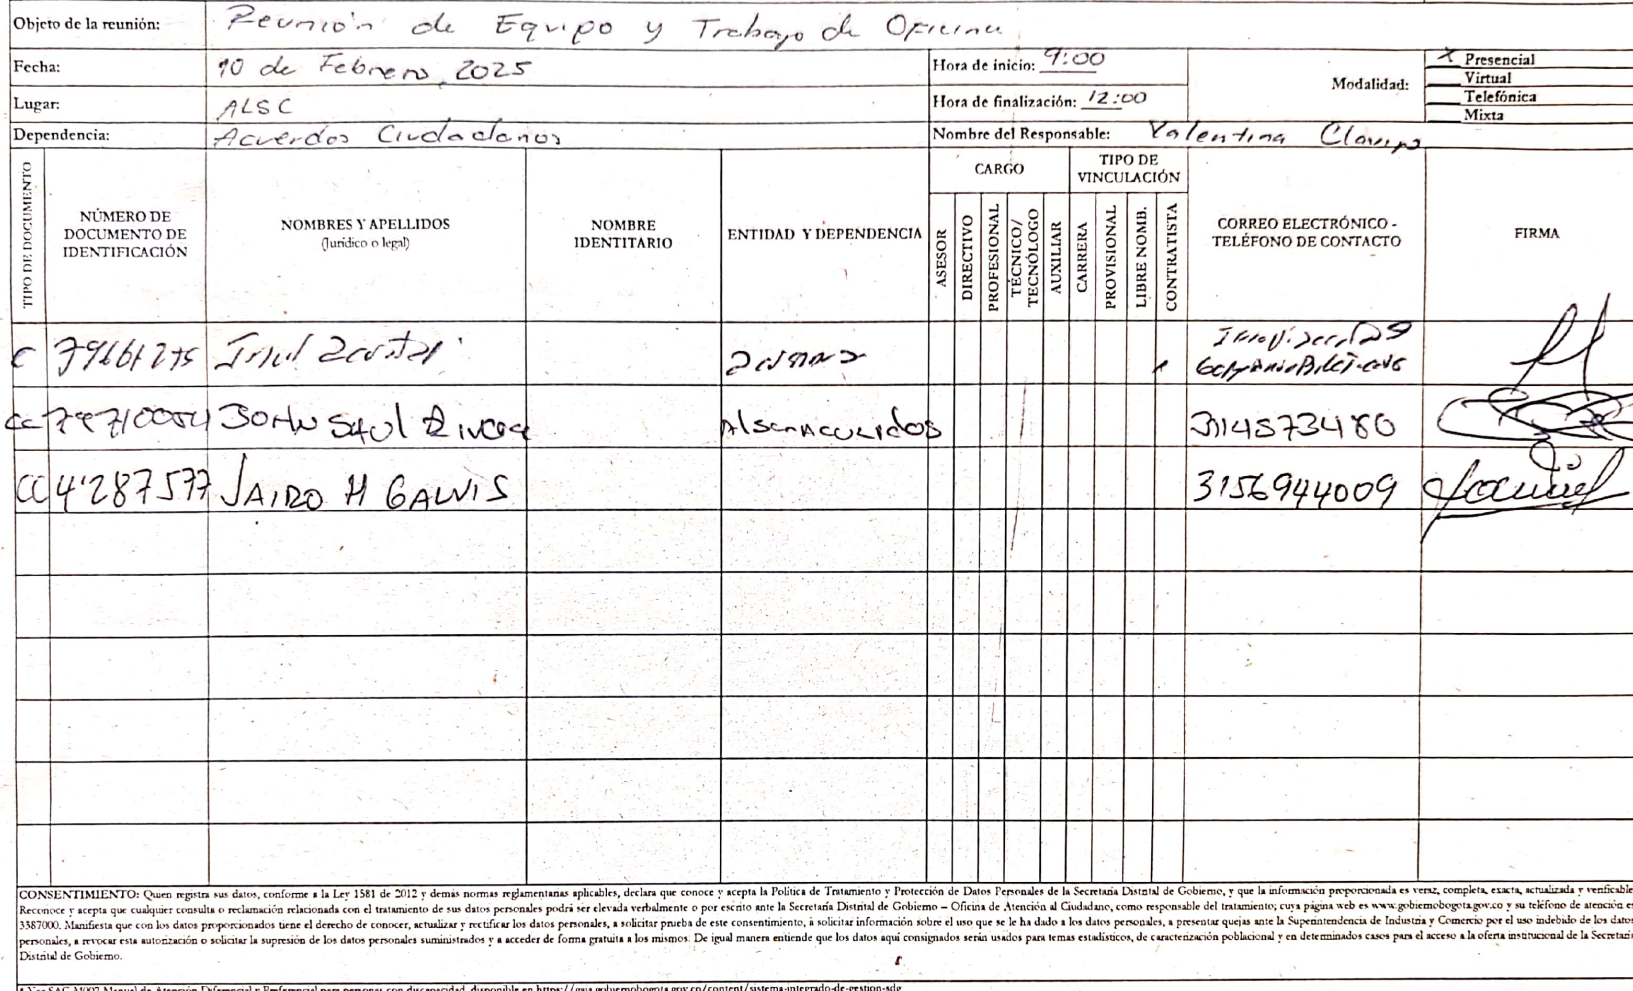 Objeto de la reunión: Reunión de Equipo y Trabajo de Oficina
Fecha: 10 de Febrero 2025
Hora de inicio: 9:00
Modalidad: X Presencial
Virtual
Telefónica
Mixta
Lugar: ALSC
Hora de finalización: 12:00
Dependencia: Acuerdos Ciudadanos
Nombre del Responsable: Valentina
TIPO DE DOCUMENTO
NÚMERO DE DOCUMENTO DE IDENTIFICACIÓN
NOMBRES Y APELLIDOS
(Jurídico o legal)
NOMBRE IDENTITARIO
ENTIDAD Y DEPENDENCIA
CARGO
ASESOR
DIRECTIVO
PROFESIONAL
TECNICO/ TECNÓLOGO
AUXILIAR
TIPO DE VINCULACIÓN
CARRERA
PROVISIONAL
LIBRE NOMB.
CONTRATISTA
CORREO ELECTRÓNICO - TELÉFONO DE CONTACTO
FIRMA
C
CC JOHN SAUL Rivera 3114573480
CC 4'287577 JAIRO H GALVIS 3156944009
CONSENTIMIENTO: Quien registra sus datos, conforme a la Ley 1581 de 2012 y demás normas reglamentarias aplicables, declara que conoce y acepta la Política de Tratamiento y Protección de Datos Personales de la Secretaría Distrital de Gobierno, y que la información proporcionada es veraz, completa, exacta, actualizada y verificable
Reconoce y acepta que cualquier consulta o reclamación relacionada con el tratamiento de sus datos personales podrá ser elevada verbalmente o por escrito ante la Secretaría Distrital de Gobierno – Oficina de Atención al Ciudadano, como responsable del tratamiento; cuya página web es www.gobiernobogota.gov.co y su teléfono de atención es
3387000. Manifiesta que con los datos proporcionados tiene el derecho de conocer, actualizar y rectificar los datos personales, a solicitar prueba de este consentimiento, a solicitar información sobre el uso que se le ha dado a los datos personales, a presentar quejas ante la Superintendencia de Industria y Comercio por el uso indebido de los datos
personales, a revocar esta autorización o solicitar la supresión de los datos personales suministrados y a acceder de forma gratuita a los mismos. De igual manera entiende que los datos aquí consignados serán usados para temas estadísticos, de caracterización poblacional y en determinados casos para el acceso a la oferta institucional de la Secretaría
Distrital de Gobierno.